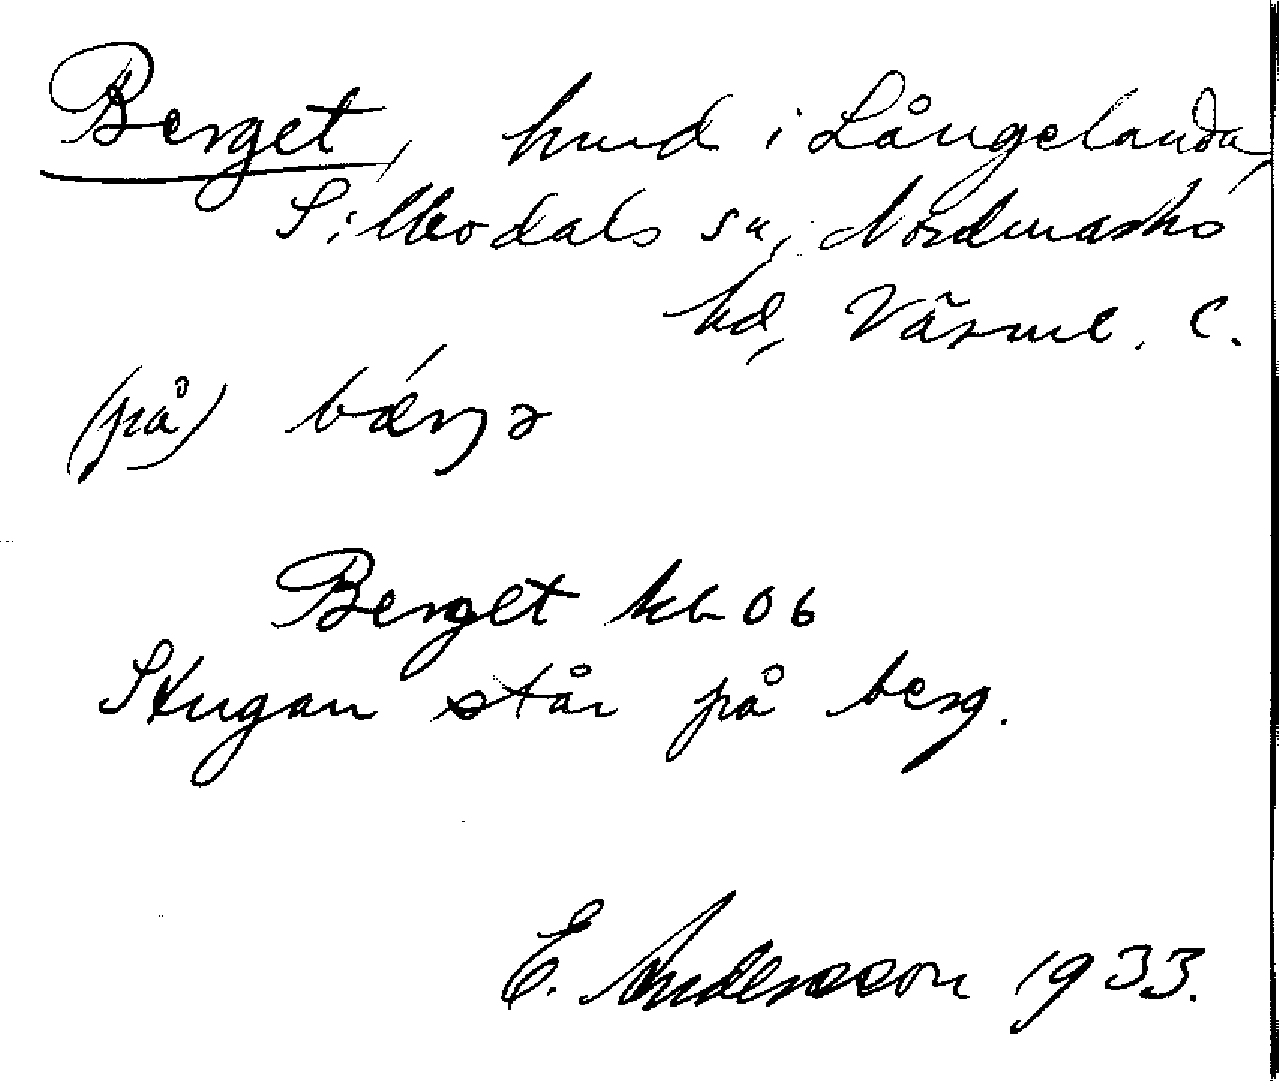 Berget, hmd i Långelanda,
Sillbodals sn, Nordmarks
hd, Värml. C.
(på) bǽrjə
Berget kb 06
Stugan står på berg.
E. Andersson 1933.